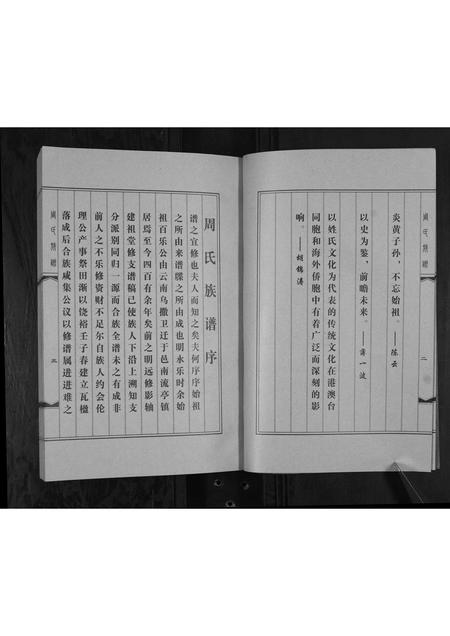 周氏族谱
二
炎黄子孙，不忘始祖。——陈云
以史为鉴，前瞻未来。——薄一波
以姓氏文化为代表的传统文化在港澳台
同胞和海外侨胞中有着广泛而深刻的影
响。——胡锦涛
周氏族谱序
谱之宜修也夫人而知之矣夫何序序始祖
之所由来谱牒之所由成也明永乐时余始
祖百乐公由云南乌撒卫迁于邑南流亭镇
居焉至今四百有余年矣前之明远修影轴
建祖堂修支谱稿已使族人下沿上溯知支
分派别同归一源而合族全谱未之有成非
前人之不乐修资财不足尔自族人约会伦
理公产事祭田渐以饶裕壬子春建立瓦楹
落成后合族咸集公议以修谱属进进难之
周氏族谱
三